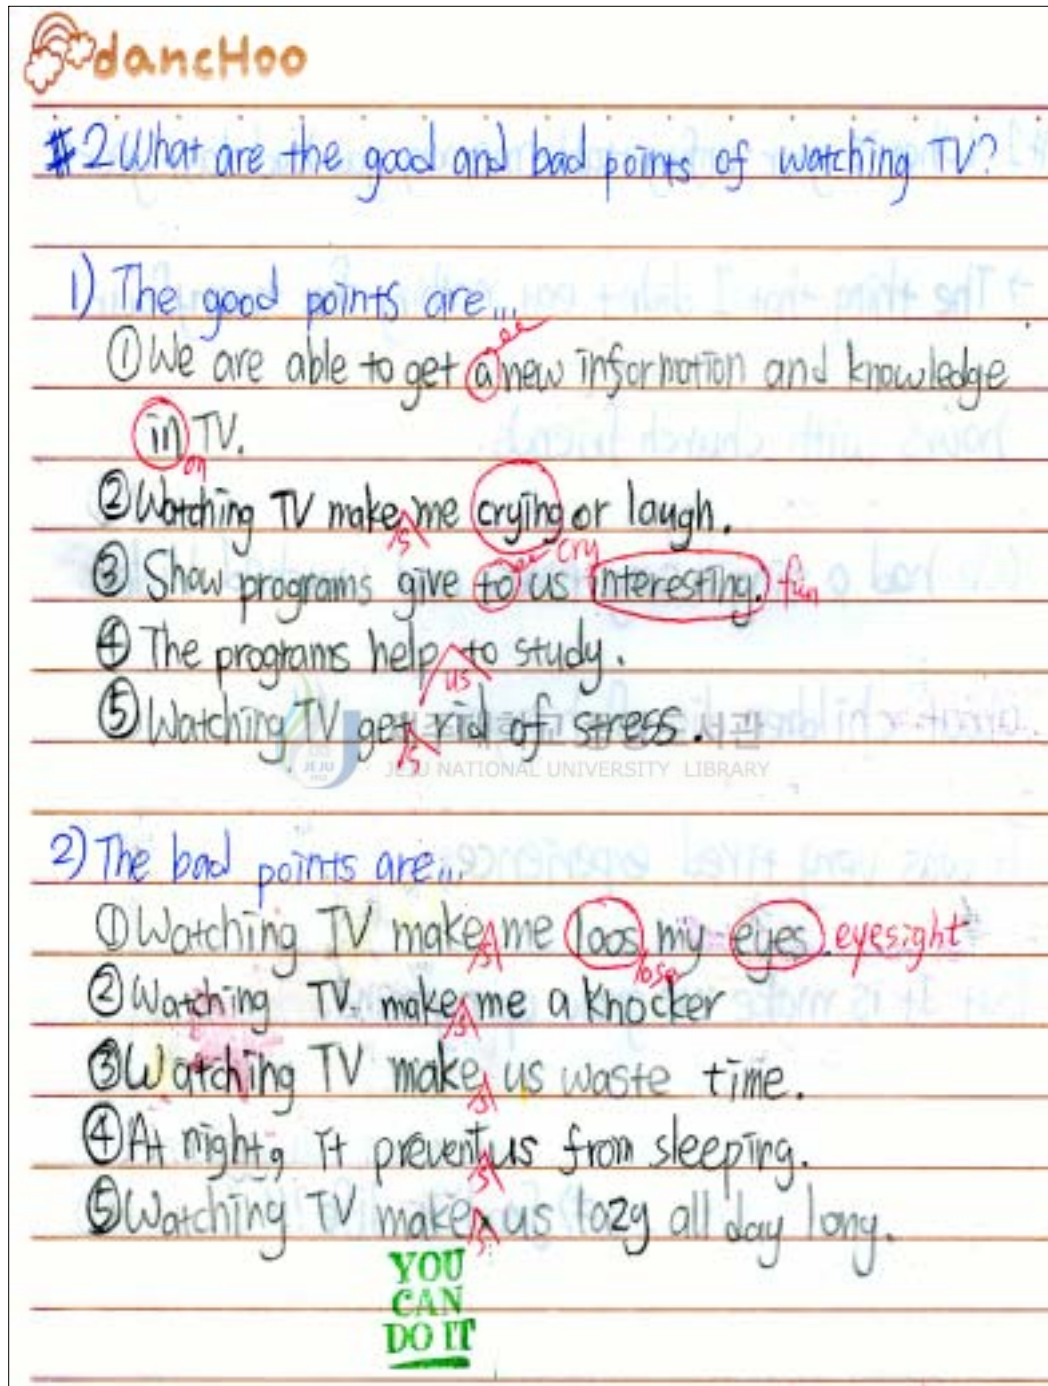 dancHoo
#2 What are the good and bad points of watching TV?
1) The good points are...
① We are able to get a new information and knowledge
in TV.
on
② Watching TV make me crying or laugh.
s
cry
③ Show programs give to us interesting. fun
④ The programs help to study.
us
⑤ Watching TV get rid of stress.
s
JEJU NATIONAL UNIVERSITY LIBRARY
2) The bad points are...
① Watching TV make me loos my eyes. eyesight
s lose
② Watching TV make me a knocker
s
③ Watching TV make us waste time.
s
④ At night, it prevent us from sleeping.
s
⑤ Watching TV make us lazy all day long.
s
YOU
CAN
DO IT